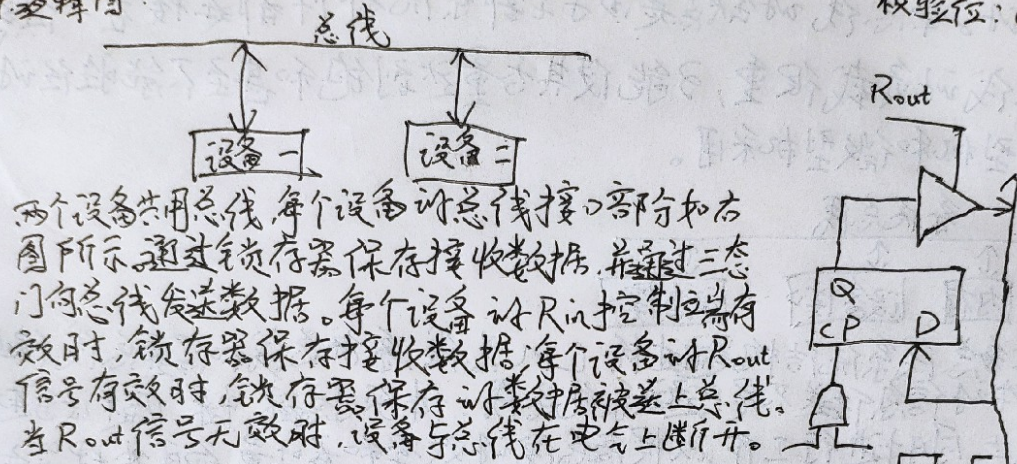 总线
校验位:
Rout
设备一
设备二
两个设备共用总线,每个设备的总线接口部分如右
图所示。通过锁存器保存接收数据,并通过三态
门向总线发送数据。每个设备的Rin控制端有
效时,锁存器保存接收数据,每个设备的Rout
信号有效时,锁存器保存的数据被送上总线。
当Rout信号无效时,设备与总线在电气上断开。
Q
CP D